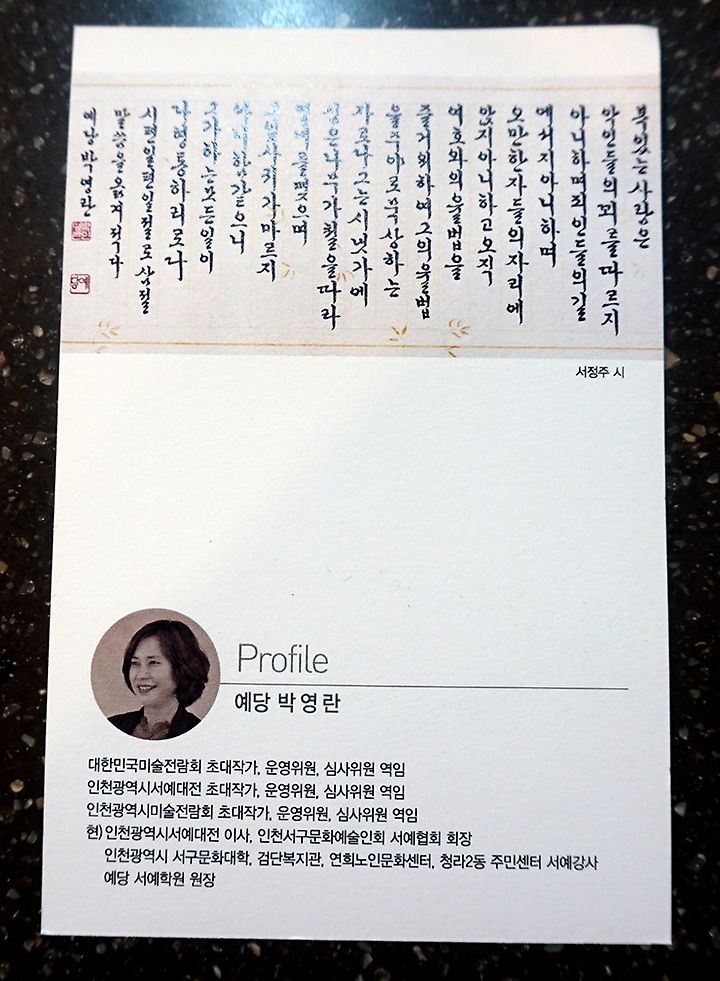 복있는사람은
악인들의꾀를따르지
아니하며죄인들의길
에서지아니하며
오만한자들의자리에
앉지아니하고오직
여호와의율법을
즐거워하여그의율법
을주야로묵상하는
자로다그는시냇가에
심은나무가철을따라
열매를맺으며
그잎사귀가마르지
아니함같으니
그가하는모든일이
다형통하리로다
시편일편일절로삼절
말씀을옮겨적다
예당박영란
서정주 시
Profile
예당 박영란
대한민국미술전람회 초대작가, 운영위원, 심사위원 역임
인천광역시서예대전 초대작가, 운영위원, 심사위원 역임
인천광역시미술전람회 초대작가, 운영위원, 심사위원 역임
현) 인천광역시서예대전 이사, 인천서구문화예술인회 서예협회 회장
인천광역시 서구문화대학, 검단복지관, 연희노인문화센터, 청라2동 주민센터 서예강사
예당 서예학원 원장